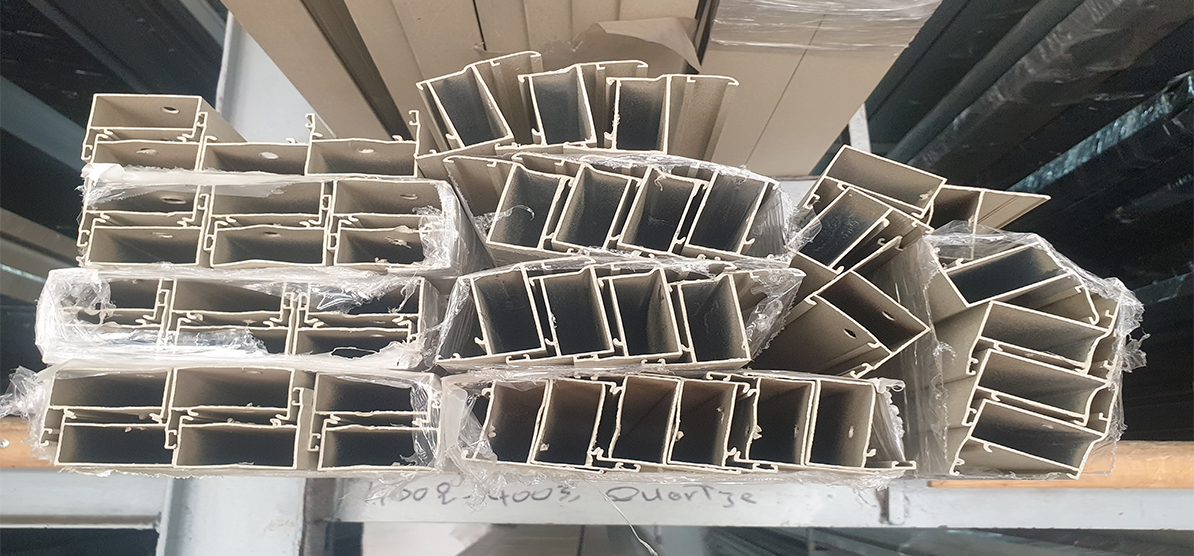 4008-4003, Quartze